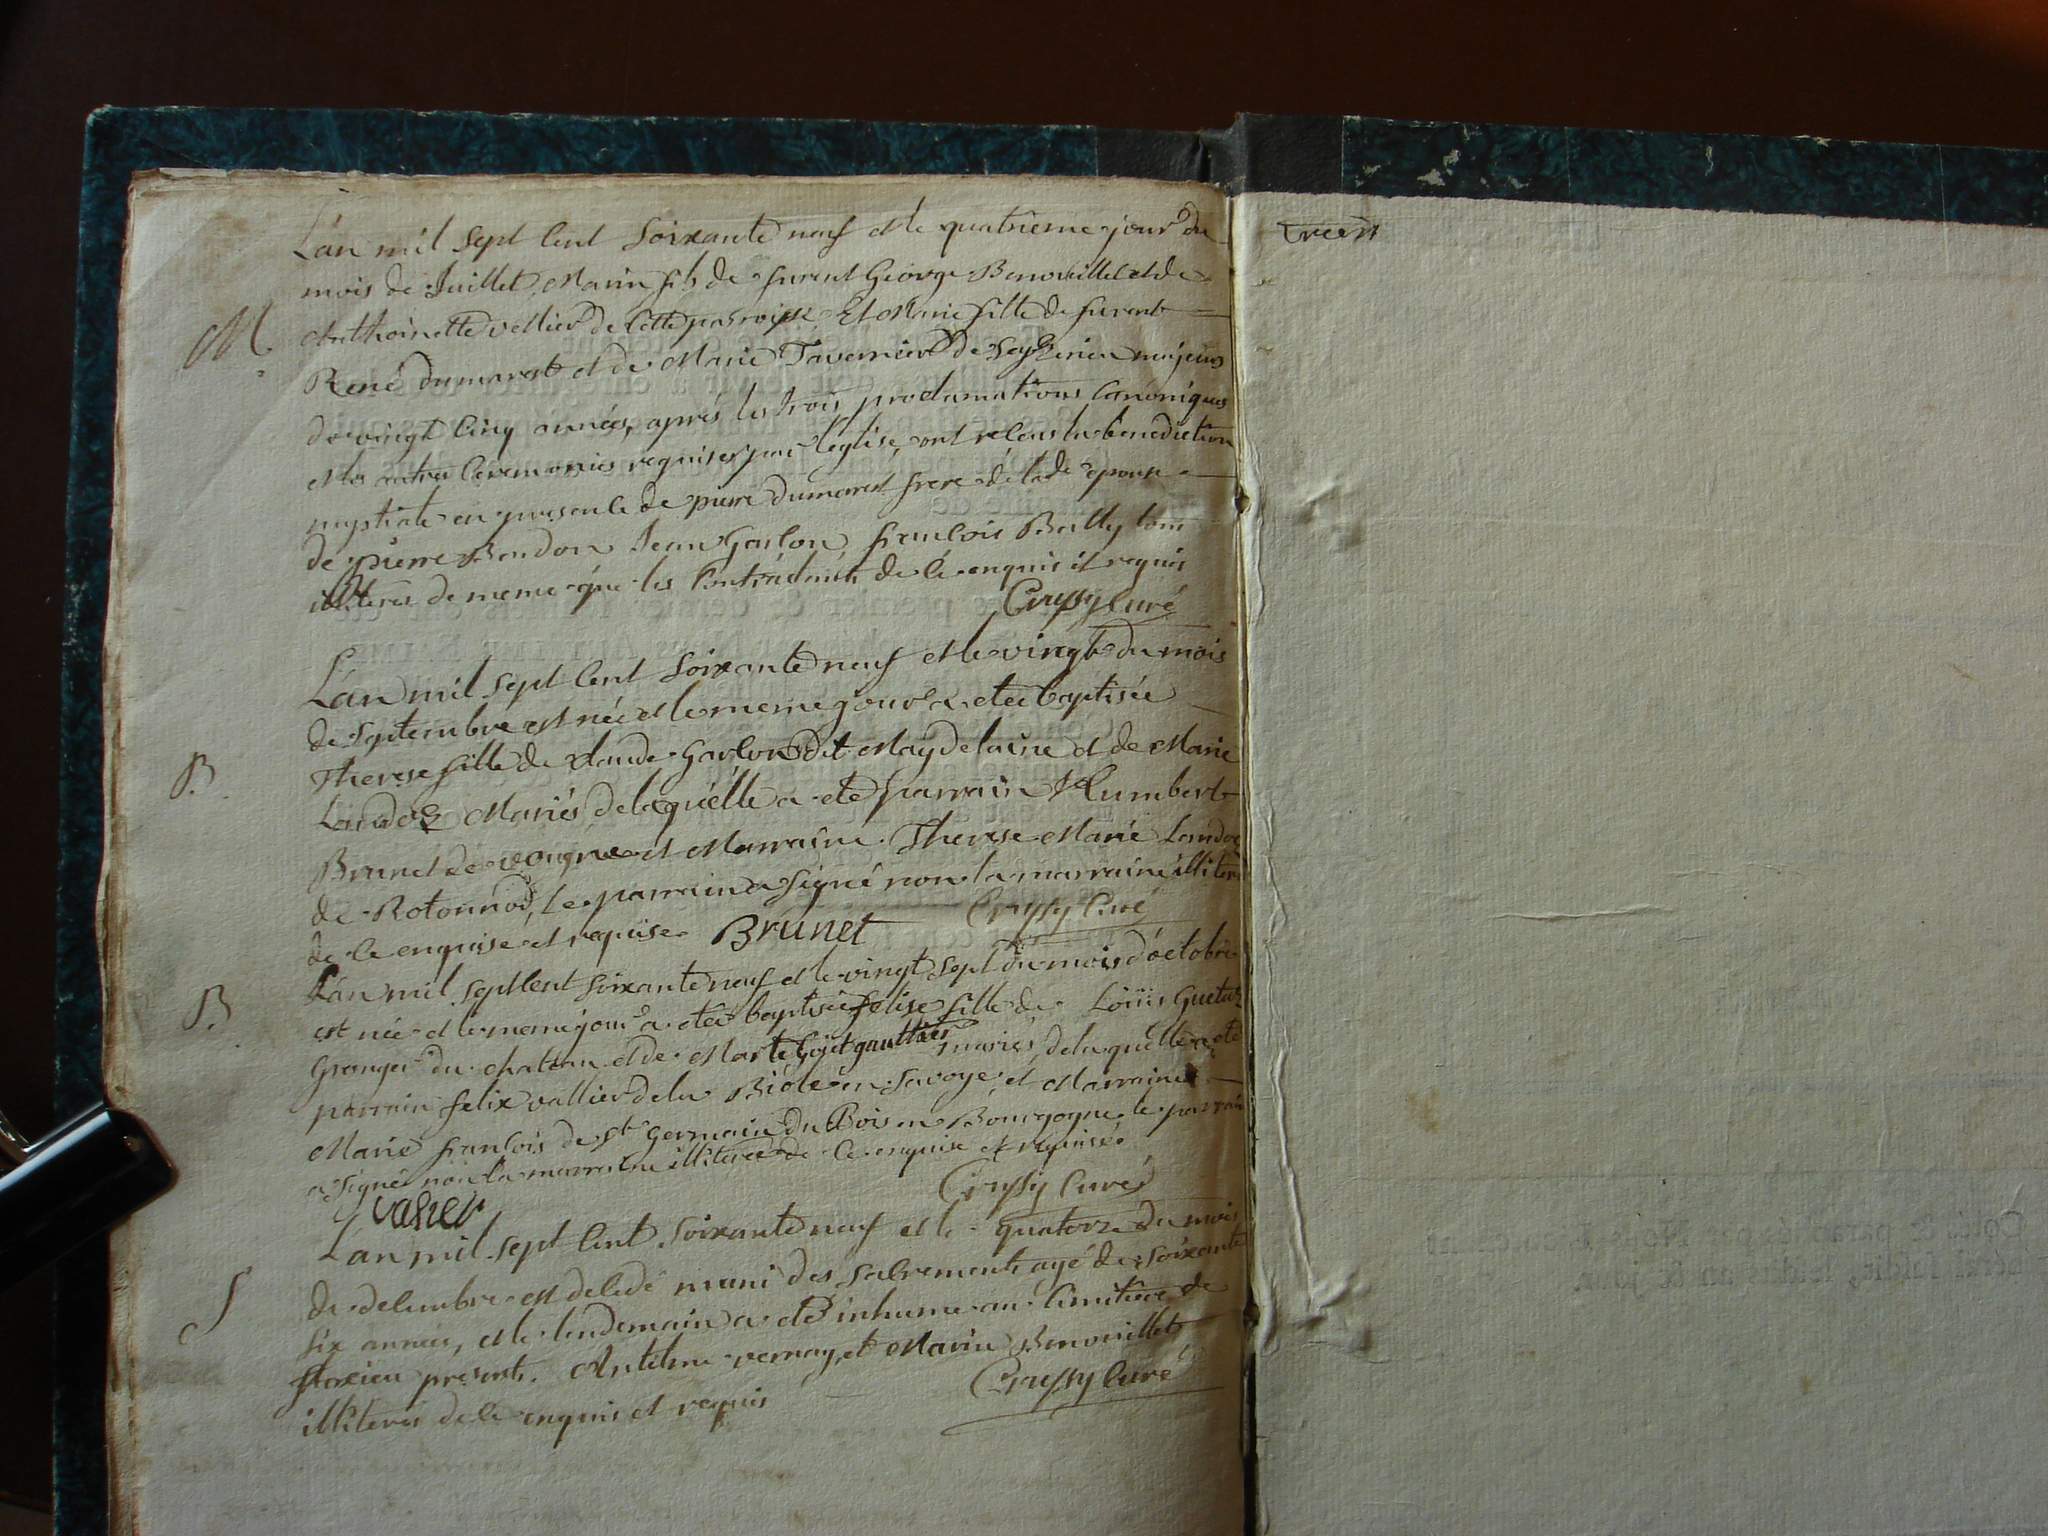 L'an mil sept cent soixante neuf et le quatrieme jour du
mois de Juillet, Marin fils de furent George Benonillet et de
M
Anthoinette vellier de cette parroisse Et Marie fille de furent
René Dumarest et de Marie Tavernier de Seyzerieu majeurs
de vingt cinq années, aprés les trois proclamations canoniques
et les autres ceremonies requises par l'eglise, ont reçeus la benediction
nuptiale en presence de pierre Dumarest frere de lade epouse
de pierre Bendon Jean Garlon francois Bailly tous
illiterés de meme que les Contractants de ce enquis et requis
Crussy Curé
L'an mil sept cent soixante neuf et le vingt du mois
de Septembre est née et le meme jour a eteé baptisée
B.
Therese fille de Claude Garlon Dit Maydelaine et de Marie
Landoz Mariés de laquelle a eté parrain Humbert
Brunet de et Marraine Therese Marie Landoz
de Rotonnod, le parrain a signé non la marraine illiteré
de ce enquise et requise Brunet Crussy Curé
B.
L'an mil sept cent soixante neuf et le vingt sept du mois d'octobre
est née et le meme jour a eteé baptisée felise fille de Loüis Guetaz
Granger du chateau et de Marie gaulthier mariés de laquelle a eté
parrain felix vallier de la Biole en Savoye et Marraine
Marie francois de St Germain du Bois en Bourgogne le parrain
a signé non la marraine illiterée de ce enquise et requise
valier Crussy Curé
L'an mil sept cent soixante neuf et le quatorze du mois
S
de decembre est decedé muni des sacrements agé de soixante
six années, et le lendemain a eté inhumé au cimitiere de
flaxieu presents Antelme vernay, et Marin Benonillet
illiterés de ce enquis et requis Crussy Curé